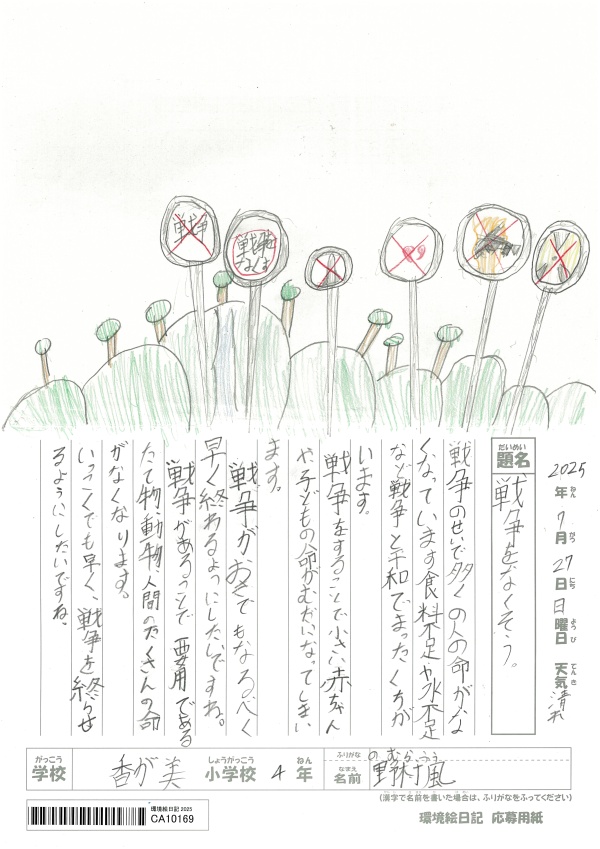 戦争
戦争
なくす
2025年ねん 7月がつ 27日にち 日曜日ようび 天気てんき 晴れ
題名だいめい 戦争をなくそう。
戦争のせいで多くの人の命がな
くなっています食料不足や水不足
など戦争と平和でまったくちが
います。
戦争をすることで小さい赤ちゃん
や子どもの命がむだになってしまい
ます。
戦争がおきてもなるべく
早く終わるようにしたいですね。
戦争があることで必要である
たて物、動物、人間のたくさんの命
がなくなります。
いっこくでも早く、戦争を終らせ
るようにしたいですね。
学校がっこう 香が美 小学校しょうがっこう 4 年ねん
ふりがな のむらふう
名前なまえ 野村風
(漢字で名前を書いた場合は、ふりがなをふってください)
環境絵日記 2025
CA10169
環境絵日記 応募用紙